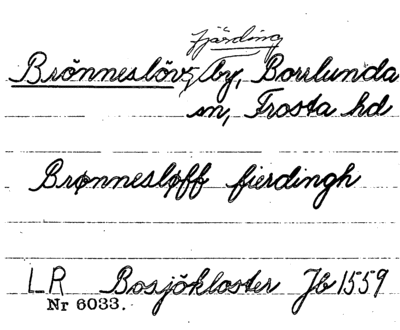 fjärding
Brönneslövs by, Borrlunda
sn, Frosta hd
Brønnesløff fierdingh
LR Bosjökloster Jb 1559
Nr 6033.